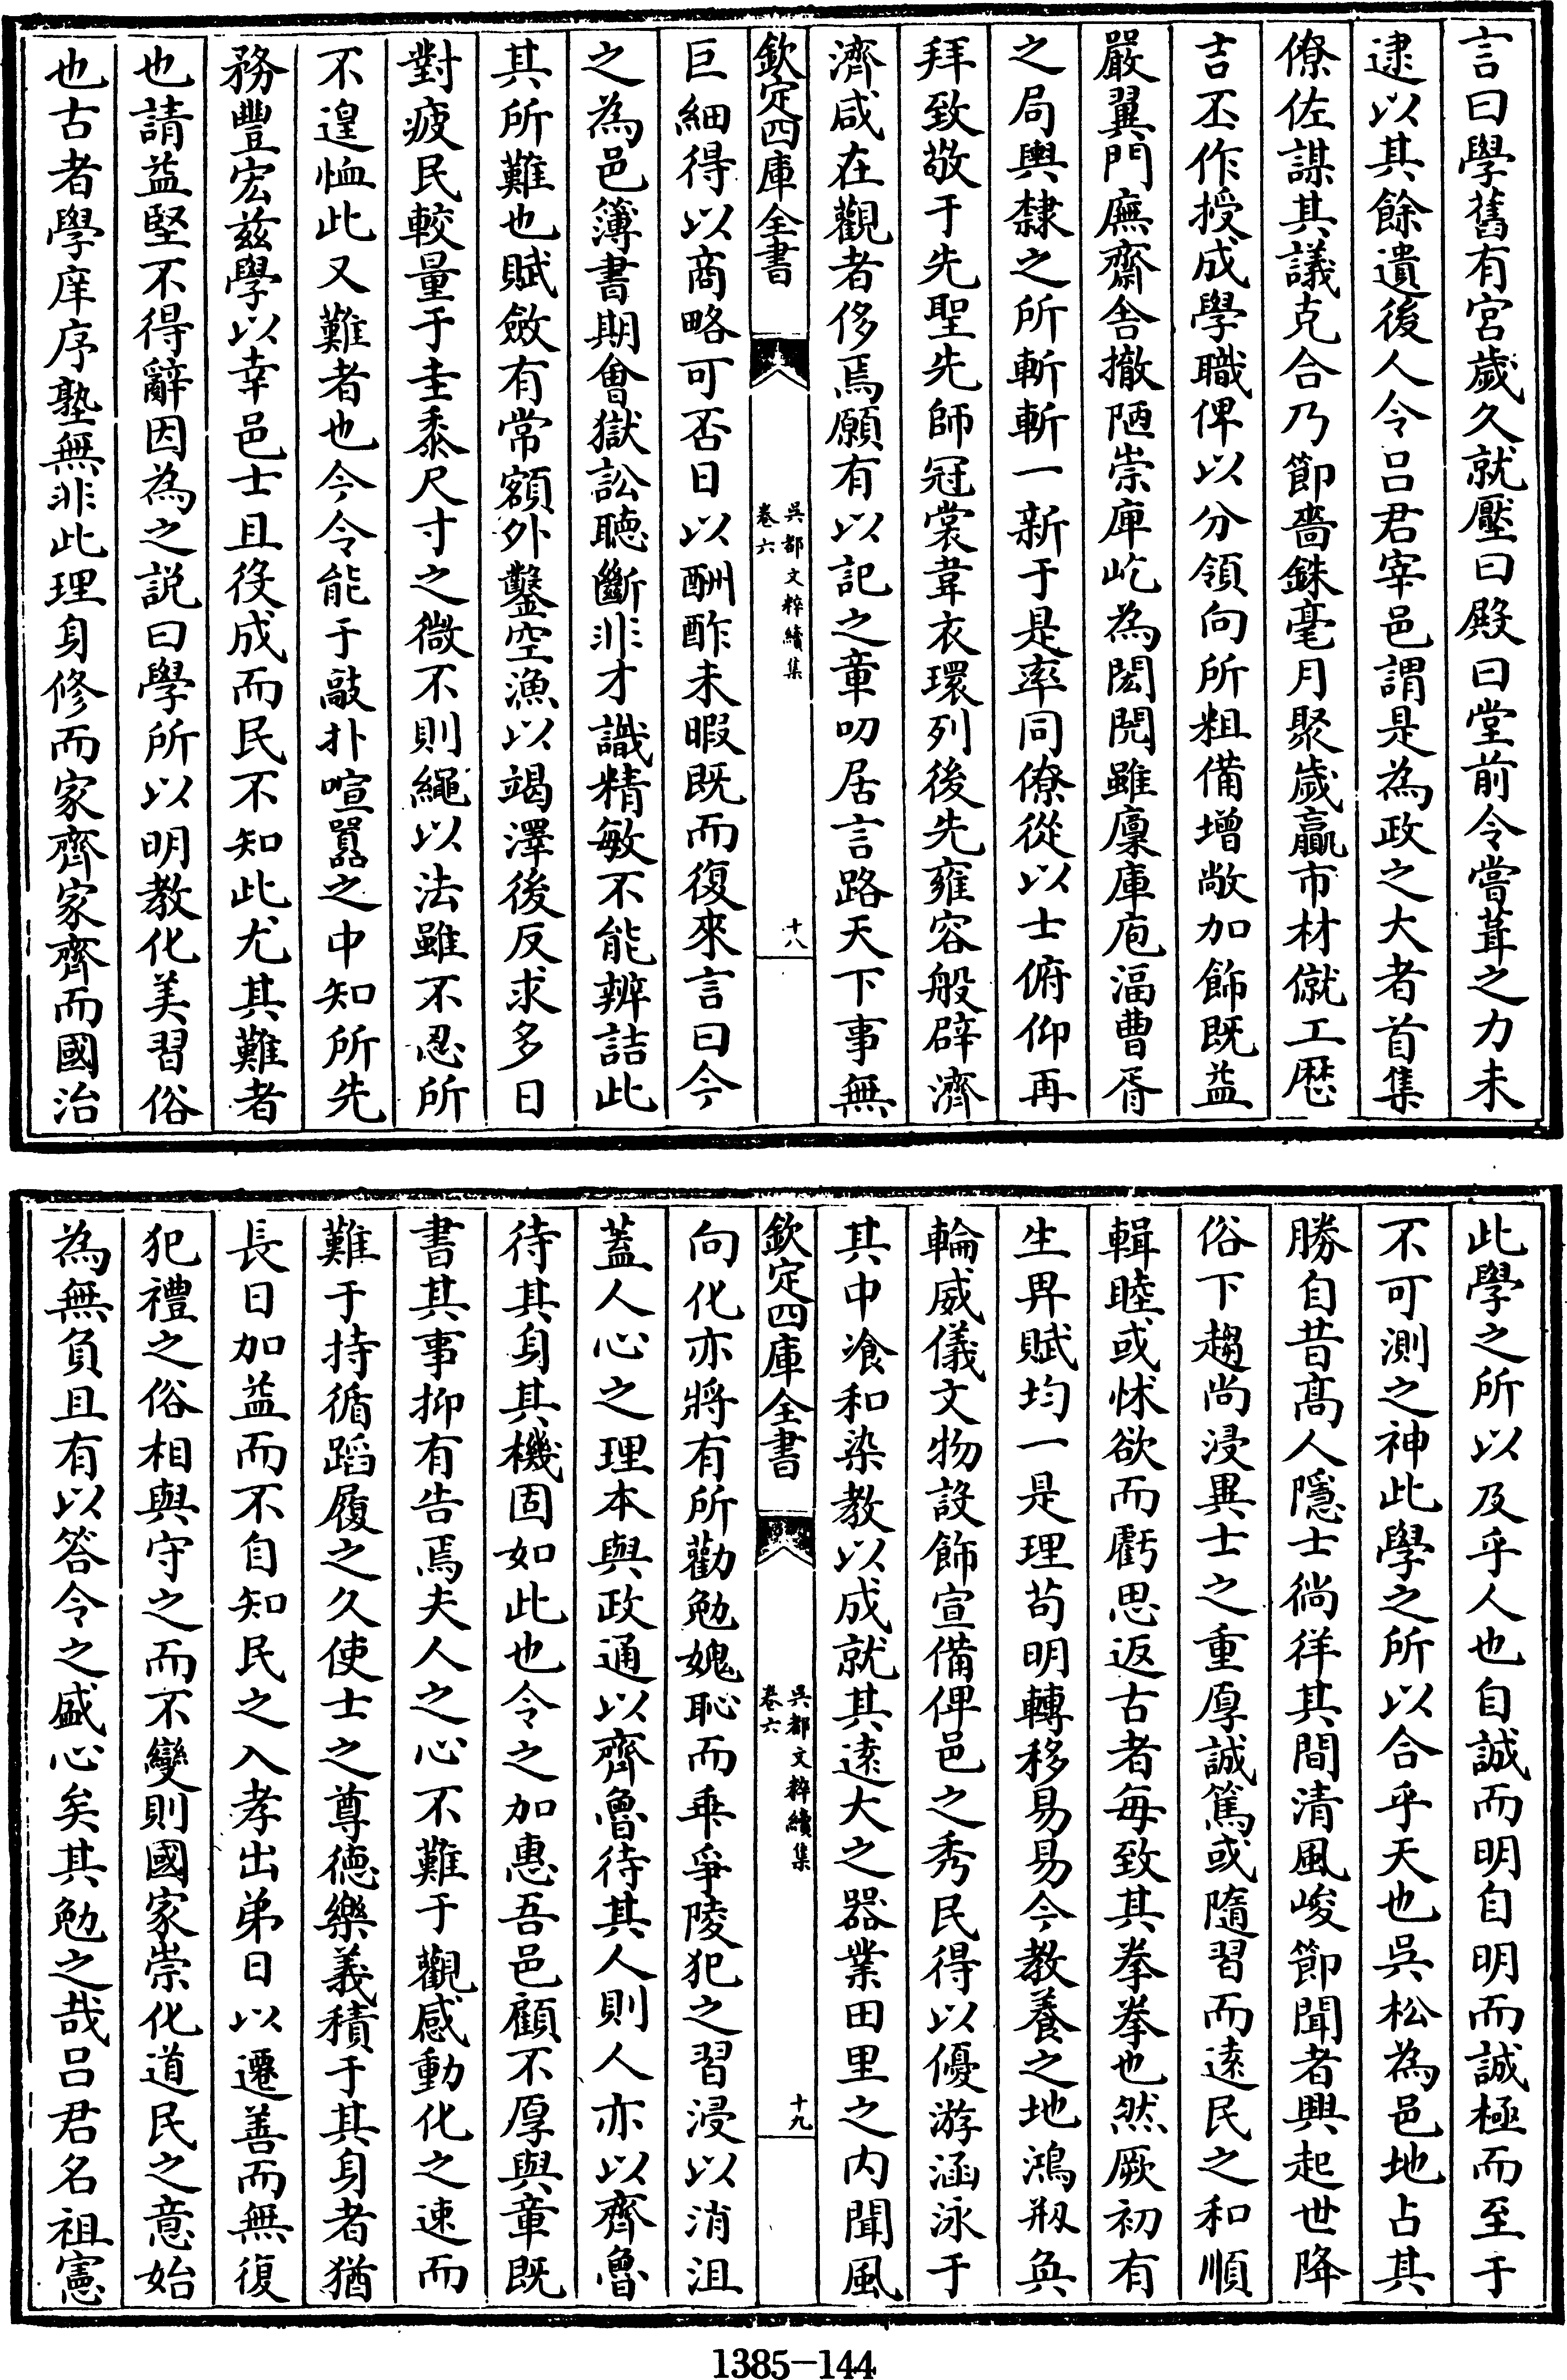 言曰學舊有宮歲久就壓曰殿曰堂前令嘗葺之力未
逮以其餘遺後人令呂君宰邑謂是為政之大者首集
僚佐謀其議克合乃節嗇銖毫月聚歲贏市材僦工歴
吉丕作授成學職俾以分領向所粗備增敞加飾既益
嚴翼門廡齋舎撤陋崇庳屹為閎閌雖廩庫庖湢曹胥
之局輿隸之所斬斬一新于是率同僚從以士俯仰再
拜致敬于先聖先師冠裳韋衣環列後先雍容般辟濟
濟咸在觀者侈焉願有以記之章叨居言路天下事無
欽定四庫全書
吳都文粹續集
卷六
十八
巨細得以商略可否日以酬酢未暇既而復來言曰今
之為邑簿書期會獄訟聽斷非才識精敏不能辨詰此
其所難也賦斂有常額外鑿空漁以竭澤後反求多日
對疲民較量于圭黍尺寸之微不則繩以法雖不忍所
不遑恤此又難者也今令能于敲扑喧囂之中知所先
務豐宏兹學以幸邑士且役成而民不知此尤其難者
也請益堅不得辭因為之説曰學所以明教化美習俗
也古者學庠序塾無非此理身修而家齊家齊而國治
此學之所以及乎人也自誠而明自明而誠極而至于
不可測之神此學之所以合乎天也吳松為邑地占其
勝自昔高人隱士徜徉其間清風峻節聞者興起世降
俗下趨尚浸異士之重厚誠篤或隨習而逺民之和順
輯睦或怵欲而虧思返古者每致其拳拳也然厥初有
生畀賦均一是理苟明轉移易易今教養之地鴻剏奐
輪威儀文物設飾宣備俾邑之秀民得以優游涵泳于
其中飡和染教以成就其逺大之器業田里之内聞風
欽定四庫全書
吳都文粹續集
卷六
十九
向化亦將有所勸勉媿恥而乖爭陵犯之習浸以消沮
蓋人心之理本與政通以齊魯待其人則人亦以齊魯
待其身其機固如此也令之加惠吾邑顧不厚與章既
書其事抑有告焉夫人之心不難于觀感動化之速而
難于持循蹈履之久使士之尊德樂義積于其身者猶
長日加益而不自知民之入孝出弟日以遷善而無復
犯禮之俗相與守之而不變則國家崇化道民之意始
為無負且有以答令之盛心矣其勉之哉呂君名祖憲
1385-144